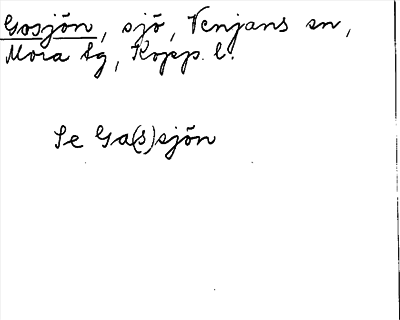 Gosjön, sjö, Venjans sn,
Mora tg, Kopp. l.
Se Ga(s)sjön